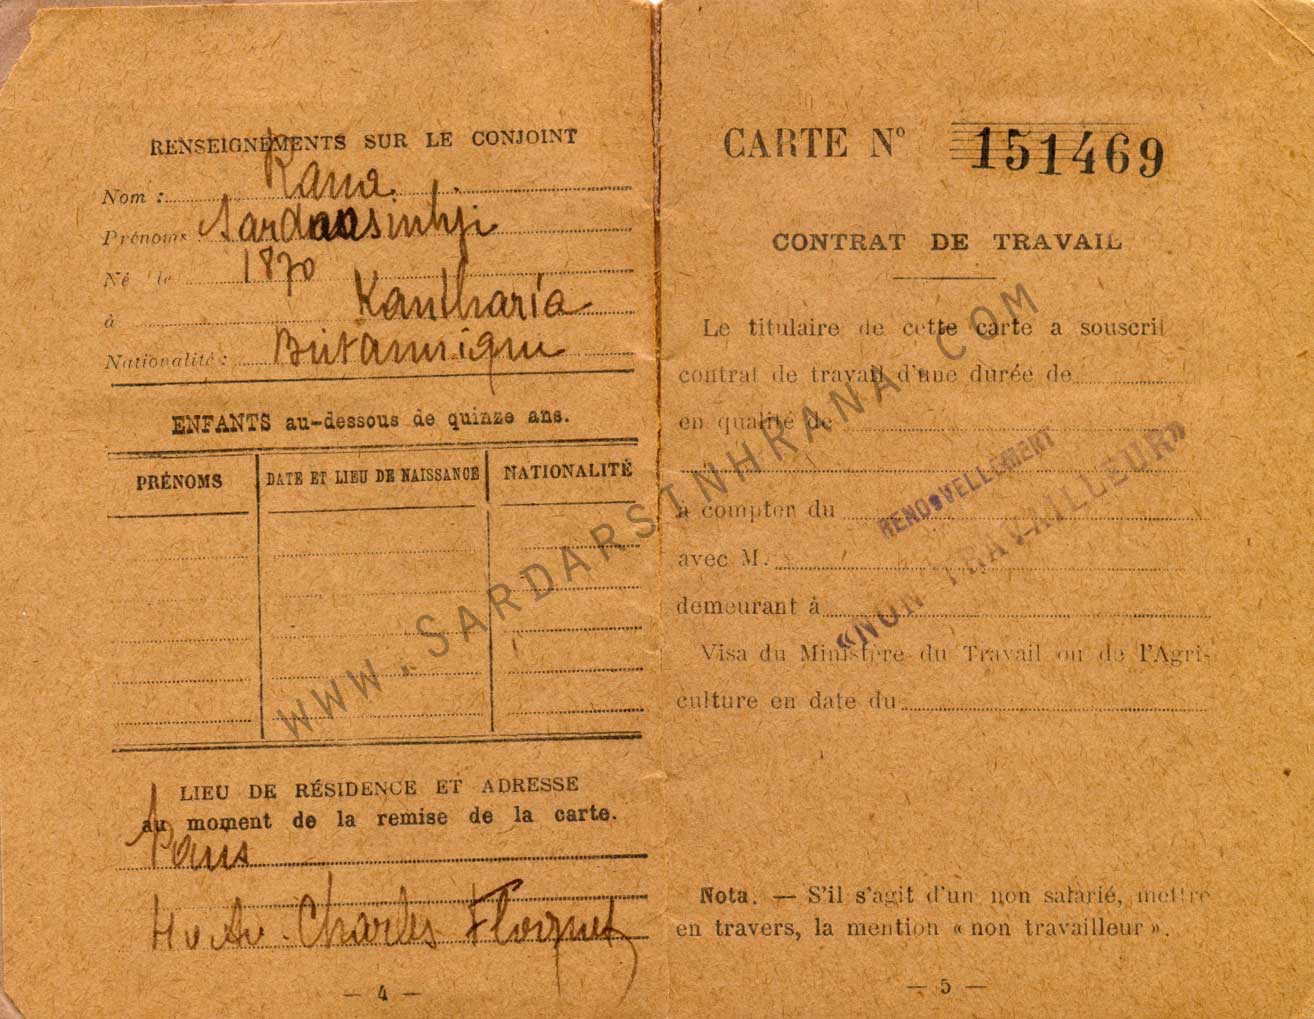 RENSEIGNEMENTS SUR LE CONJOINT
Nom : Rana
Prénoms : Sardarsinhji
Né le 1870
à Kantharia
Nationalité : Britannique
ENFANTS au-dessous de quinze ans.
PRÉNOMS DATE ET LIEU DE NAISSANCE NATIONALITÉ
LIEU DE RÉSIDENCE ET ADRESSE
au moment de la remise de la carte.
Paris
Av. Charles Floquet
— 4 —
CARTE N° 151469
CONTRAT DE TRAVAIL
Le titulaire de cette carte a souscrit
contrat de travail d'une durée de
en qualité de
à compter du
avec M.
demeurant à
Visa du Ministère du Travail ou de l'Agri-
culture en date du
RENOUVELLEMENT
«NON TRAVAILLEUR»
Nota. — S'il s'agit d'un non salarié, mettre
en travers, la mention « non travailleur ».
— 5 —
WWW.SARDARSINHRANA.COM